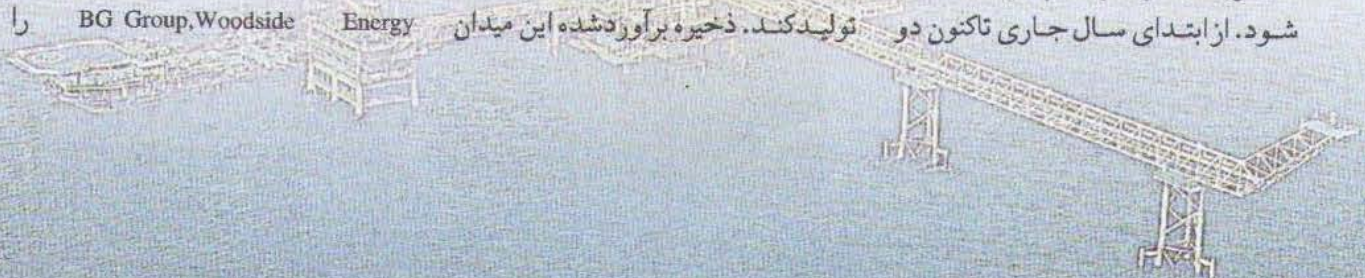 شود. از ابتدای سال جاری تاکنون دو
تولیدکند. ذخیره برآوردشده این میدان
را BG Group,Woodside Energy